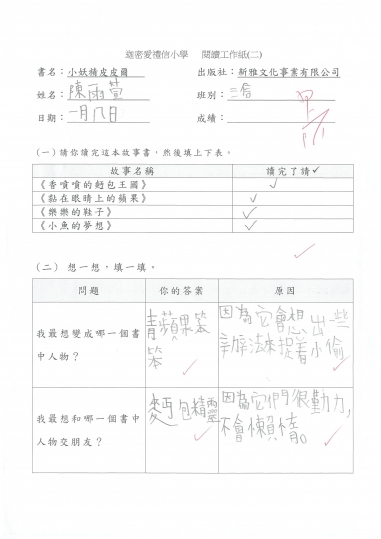 迦密愛禮信小學 閱讀工作紙(二)
書名：小妖精皮皮爾 出版社：新雅文化事業有限公司
姓名：陳雨萱 班別：三信
日期：一月八日 成績：
(一)請你讀完這本故事書，然後填上下表。
故事名稱 讀完了請✓
《香噴噴的麪包王國》 ✓
《黏在眼睛上的蘋果》 ✓
《樂樂的鞋子》 ✓
《小魚的夢想》 ✓
(二) 想一想，填一填。
問題 你的答案 原因
我最想變成哪一個書中人物？
青蘋果笨笨
因為它會想出一些
辦法來捉着小偷
我最想和哪一個書中人物交朋友？
麪包精靈
因為它們很勤力，
不會懶惰。